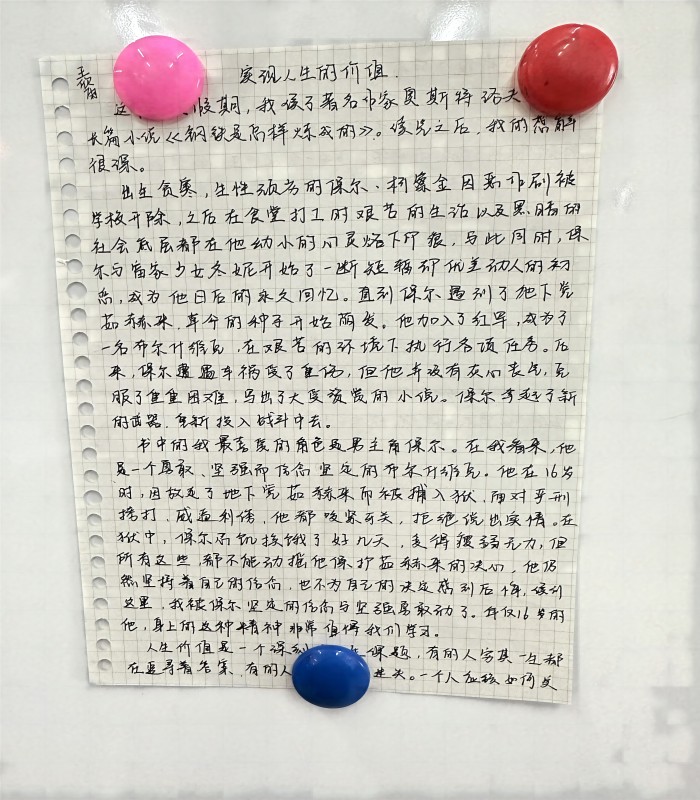 实现人生的价值.
这 假期，我读了著名作家奥斯特洛夫
长篇小说《钢铁是怎样炼成的》。读完之后，我的感触
很深。
出生贫寒，生性顽劣的保尔·柯察金因恶作剧被
学校开除，之后在食堂打工时艰苦的生活以及黑暗的
社会底层都在他幼小的心灵烙下印痕，与此同时，保
尔与富家少女冬妮开始了一断短暂却优美动人的初
恋，成为他日后的永久回忆。直到保尔遇到了地下党
茹赫来，革命的种子开始萌发。他加入了红军，成为了
一名布尔什维克，在艰苦的环境下执行各项任务。后
来，保尔遭遇车祸受了重伤，但他并没有灰心丧气，克
服了重重困难，写出了大受赞赏的小说。保尔拿起了新
的武器，重新投入战斗中去。
书中的我最喜爱的角色是男主角保尔。在我看来，他
是一个勇敢、坚强而信念坚定的布尔什维克。他在16岁
时，因放走了地下党茹赫来而被捕入狱，面对严刑
拷打，威逼利诱，他都咬紧牙关，拒绝说出实情。在
狱中，保尔而饥挨饿了好几天，变得瘦弱无力，但
所有这些，都不能动摇他保护茹赫来的决心，他仍
然坚持着自己的信念，也不为自己的决定感到后悔，读到
这里，我被保尔坚定的信念与坚强居敢动了。年仅16岁的
他，身上的这种精神非常值得我们学习。
人生价值是一个深刻 课题，有的人穷其一生都
在追寻着答案，有的人 迷失。一个人应该如何实